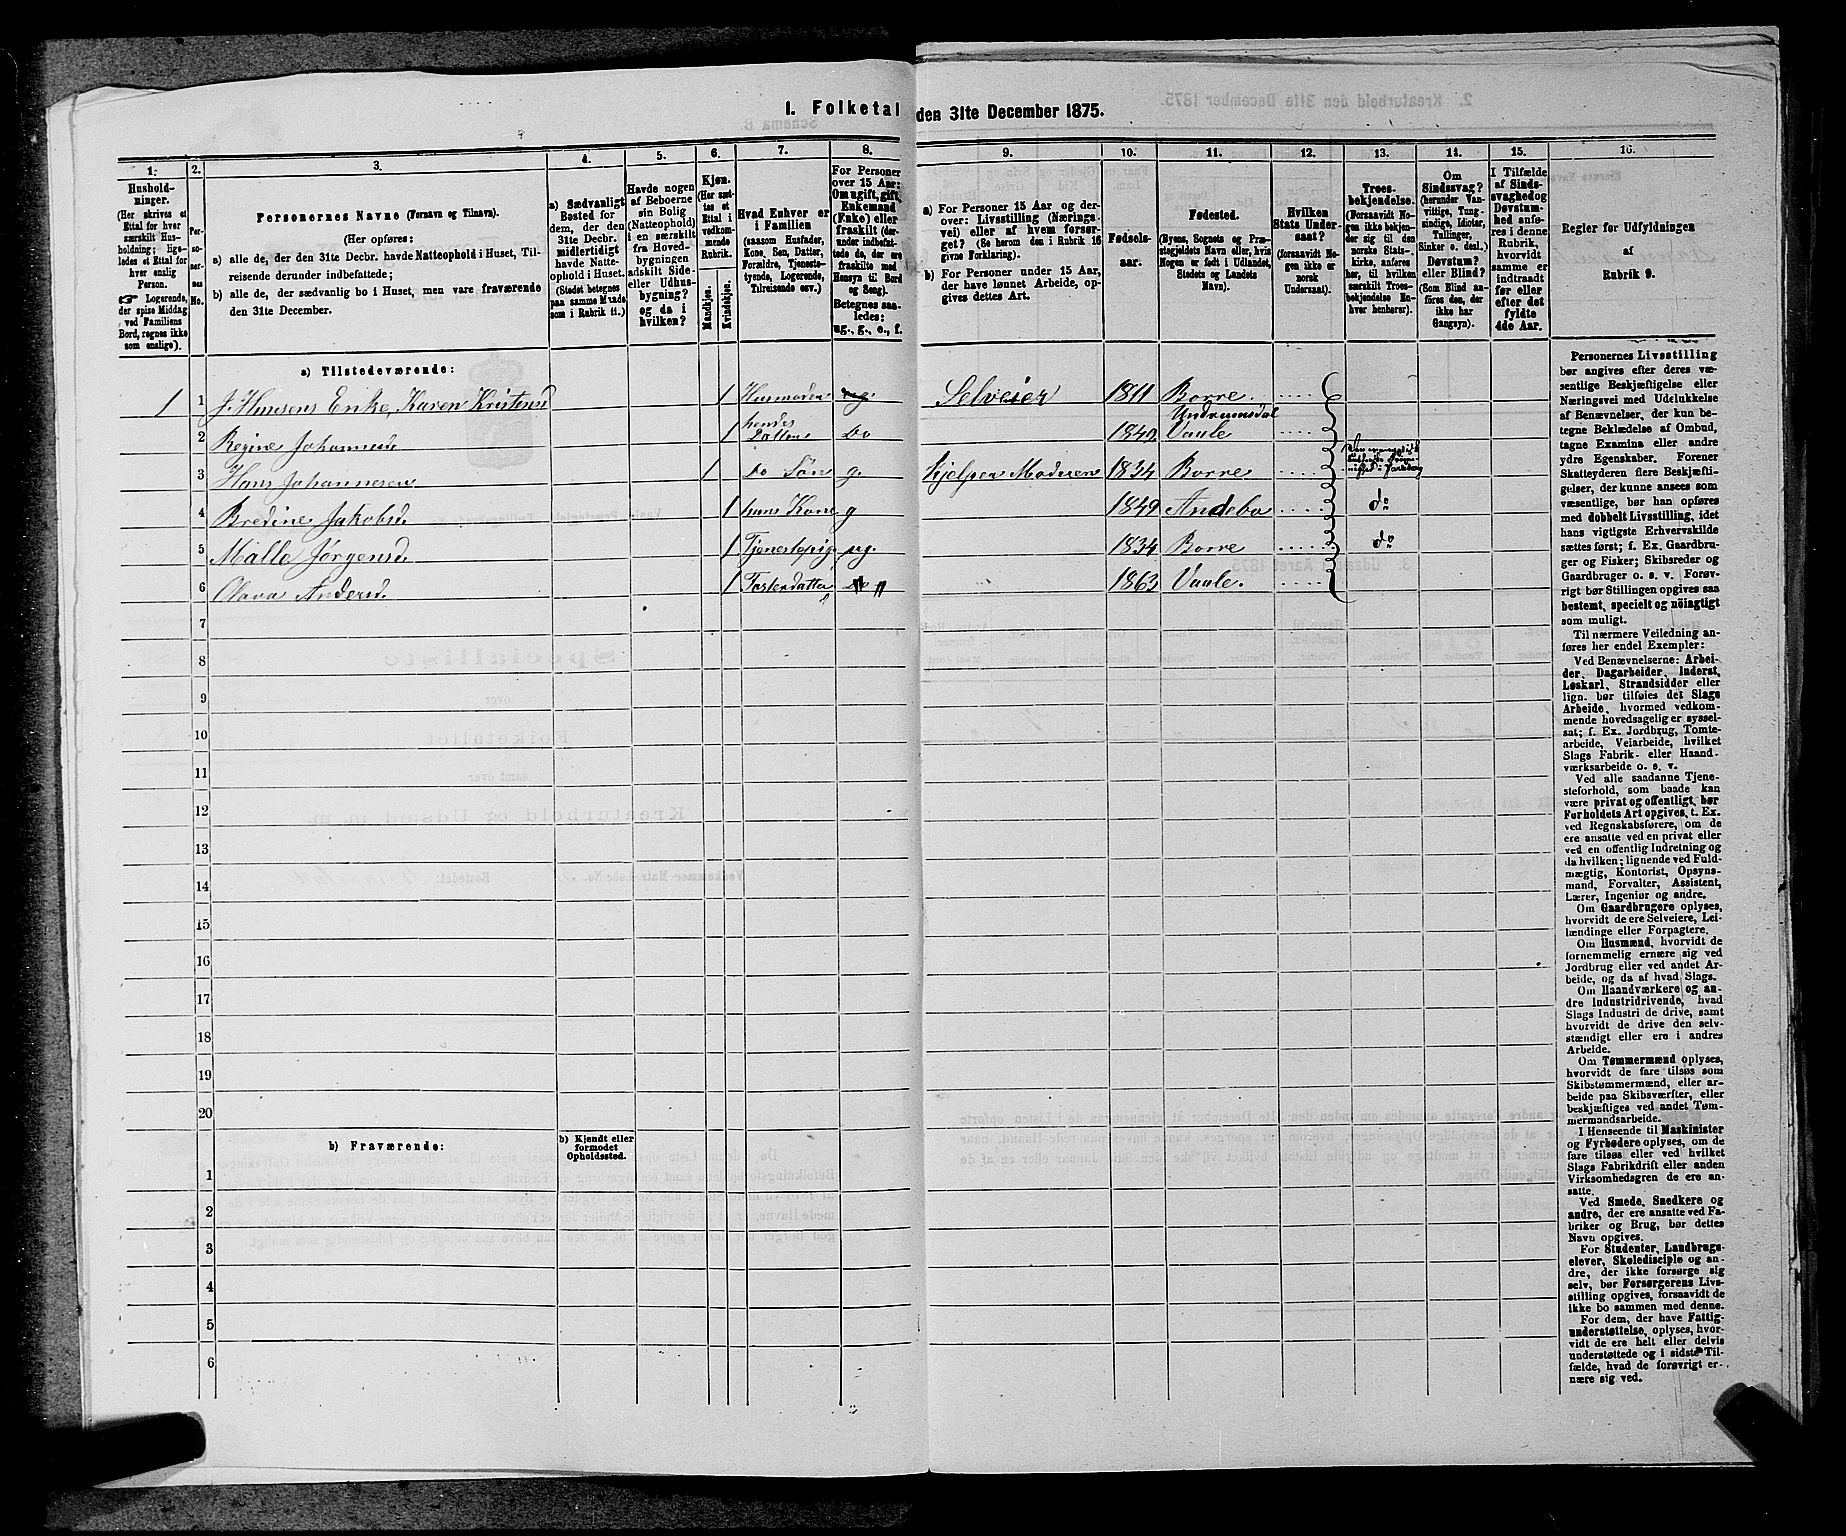 I. Folketal den 31te December 1875.
1. 2. 3. 4. 5. 6. 7. 8. 9. 10. 11. 12. 13. 14. 15. 16.
Hushold-
ninger.
(Her skrives et
Ettal for hver
særskilt Hus-
holdning; lige-
ledes et Ettal for
hver enslig
Person.
☞ Logerende,
der spise Middag
ved Familiens
Bord, regnes ikke
som enslige).
Per-
so-
ner-
nes
No.
Personernes Navne (Fornavn og Tilnavn).
(Her opføres:
a) alle de, der den 31te Decbr. havde Natteophold i Huset, Til-
reisende derunder indbefattede;
b) alle de, der sædvanlig bo i Huset, men vare fraværende
den 31te December.
a) Sædvanligt
Bosted for
dem, der den
31te Decbr.
midlertidigt
havde Natte-
ophold i Huset.
(Stedet betegnes
paa samme Maade
som i Rubrik 11.)
Havde nogen
af Beboerne
sin Bolig
(Natteophold)
i en særskilt
fra Hoved-
bygningen
adskilt Side-
eller Udhus-
bygning?
og da i
hvilken?
Kjøn.
(Her sæt-
tes et
Ettal i
vedkom-
mende
Rubrik.
Mandkjøn.
Kvindekjøn.
Hvad Enhver er
i Familien
(saasom Husfader,
Kone, Søn, Datter,
Forældre, Tjeneste-
tyende, Logerende,
Tilreisende osv.)
For Personer
over 15 Aar:
Om ugift, gift,
Enkemand
(Enke) eller
fraskilt (der-
under indbefat-
tede de, der ere
fraskilte med
Hensyn til Bord
og Seng).
Betegnes saa-
ledes:
ug., g., e., f.
a) For Personer 15 Aar og der-
over: Livsstilling (Nærings-
vei) eller af hvem forsør-
get? (Se herom den i Rubrik 16
givne Forklaring).
b) For Personer under 15 Aar,
der have lønnet Arbeide, op-
gives dettes Art.
Fødsels-
aar.
Fødested.
(Byens, Sognets og Præ-
stegjeldets Navn eller, hvis
Nogen er født i Udlandet,
Stedets og Landets
Navn).
Hvilken
Stats Under-
saat?
(forsaavidt No-
gen ikke er
norsk
Undersaat).
Troes-
bekjendelse.
(Forsaavidt No-
gen ikke bekjen-
der sig til den
norske Stats-
kirke, anføres
her, til hvilken
særskilt Troes-
bekjendelse En-
hver henhører).
Om
Sindssvag?
(herunder Van-
vittige, Tung-
sindige, Idioter,
Tullinger,
Sinker o. desl.)
Døvstum?
eller Blind?
(Som Blind an-
føres den, der
ikke har
Gangsyn).
I Tilfælde
af Sinds-
svaghed og
Døvstum-
hed anfø-
res i denne
Rubrik,
hvorvidt
samme er
indtraadt
før eller
efter det
fyldte
4de Aar.
Regler for Udfyldningen
af
Rubrik 9.
a) Tilstedeværende:
1 1 J. Hansens Enke, Karen Kristensd 1 Husmoder Selveier 1811 Borre.
2 Regine Johannesd. 1 hendes Datter Do 1840 Undrumsdal Vaale
3 Hans Johannesen 1 Do Søn g. hjelper Moderen 1834 Borre
4 Bredine Jakobsd. 1 hans Kone g 1849 Andebo do
5 Malle Jørgensd. 1 Tjenestepige ug. 1834 Borre do
6 Olava Andersd. 1 Fosterdatter 1863 Vaale.
7
8
9
10
11
12
13
14
15
16
17
18
19
20
b) Fraværende:
b) Kjendt eller
formodet
Opholdssted.
1
2
3
4
5
6
Personernes Livsstilling
bør angives efter deres væ-
sentlige Beskjæftigelse eller
Næringsvei med Udelukkelse
af Benævnelser, der kun be-
tegne Beklædelse af Ombud,
tagne Examina eller andre
ydre Egenskaber. Forener
Skatteyderen flere Beskjæfti-
gelser, der kunne ansees som
væsentlige, bør han opføres
med dobbelt Livsstilling, idet
hans vigtigste Erhvervskilde
sættes først; f. Ex. Gaardbru-
ger og Fisker; Skibsreder og
Gaardbruger o. s. v. Forøv-
rigt bør Stillingen opgives saa
bestemt, specielt og nöiagtigt
som muligt.
Til nærmere Veiledning an-
føres her endel Exempler:
Ved Benævnelserne: Arbei-
der, Dagarbeider, Inderst,
Løskarl, Strandsidder eller
lign. bør tilføies det Slags
Arbeide, hvormed vedkom-
mende hovedsagelig er syssel-
sat; f. Ex. Jordbrug, Tomte-
arbeide, Veiarbeide, hvilket
Slags Fabrik- eller Haand-
værksarbeide o. s. v.
Ved alle saadanne Tjene-
steforhold, som baade kan
være privat og offentligt, bør
Forholdets Art opgives, t. Ex.
ved Regnskabsførere, om de
ere ansatte ved en privat eller
ved en offentlig Indretning og
da hvilken; lignende ved Fuld-
mægtig, Kontorist, Opsyns-
mand, Forvalter, Assistent,
Lærer, Ingeniør og andre.
Om Gaardbrugere oplyses,
hvorvidt de ere Selveiere, Lei-
lændinge eller Forpagtere.
Om Husmænd, hvorvidt de
fornemmelig ernære sig ved
Jordbrug eller ved andet Ar-
beide, og da af hvad Slags.
Om Haandværkere og an-
dre Industridrivende, hvad
Slags Industri de drive, samt
hvorvidt de drive den selv-
stændigt eller ere i andres
Arbeide.
Om Tømmermænd oplyses,
hvorvidt de fare tilsøs som
Skibstømmermænd, eller ar-
beide paa Skibsværfter, eller
beskjæftiges ved andet Tøm-
mermandsarbeide.
I Henseende til Maskinister
og Fyrbødere oplyses, om de
fare tilsøs eller ved hvilket
Slags Fabrikdrift eller anden
Virksomhedsgren de ere an-
satte.
Ved Smede, Snedkere og
andre, der ere ansatte ved Fa-
briker og Brug, bør dettes
Navn opgives.
For Studenter, Landbrugs-
elever, Skoledisciple og an-
dre, der ikke forsørge sig
selv, bør Forsørgerens Livs-
stilling opgives, forsaavidt de
ikke bo sammen med denne.
For dem, der have Fattig-
understøttelse, oplyses, hvor-
vidt de ere helt eller delvis
understøttede og i sidste Til-
fælde, hvad de forøvrigt er-
nære sig ved.